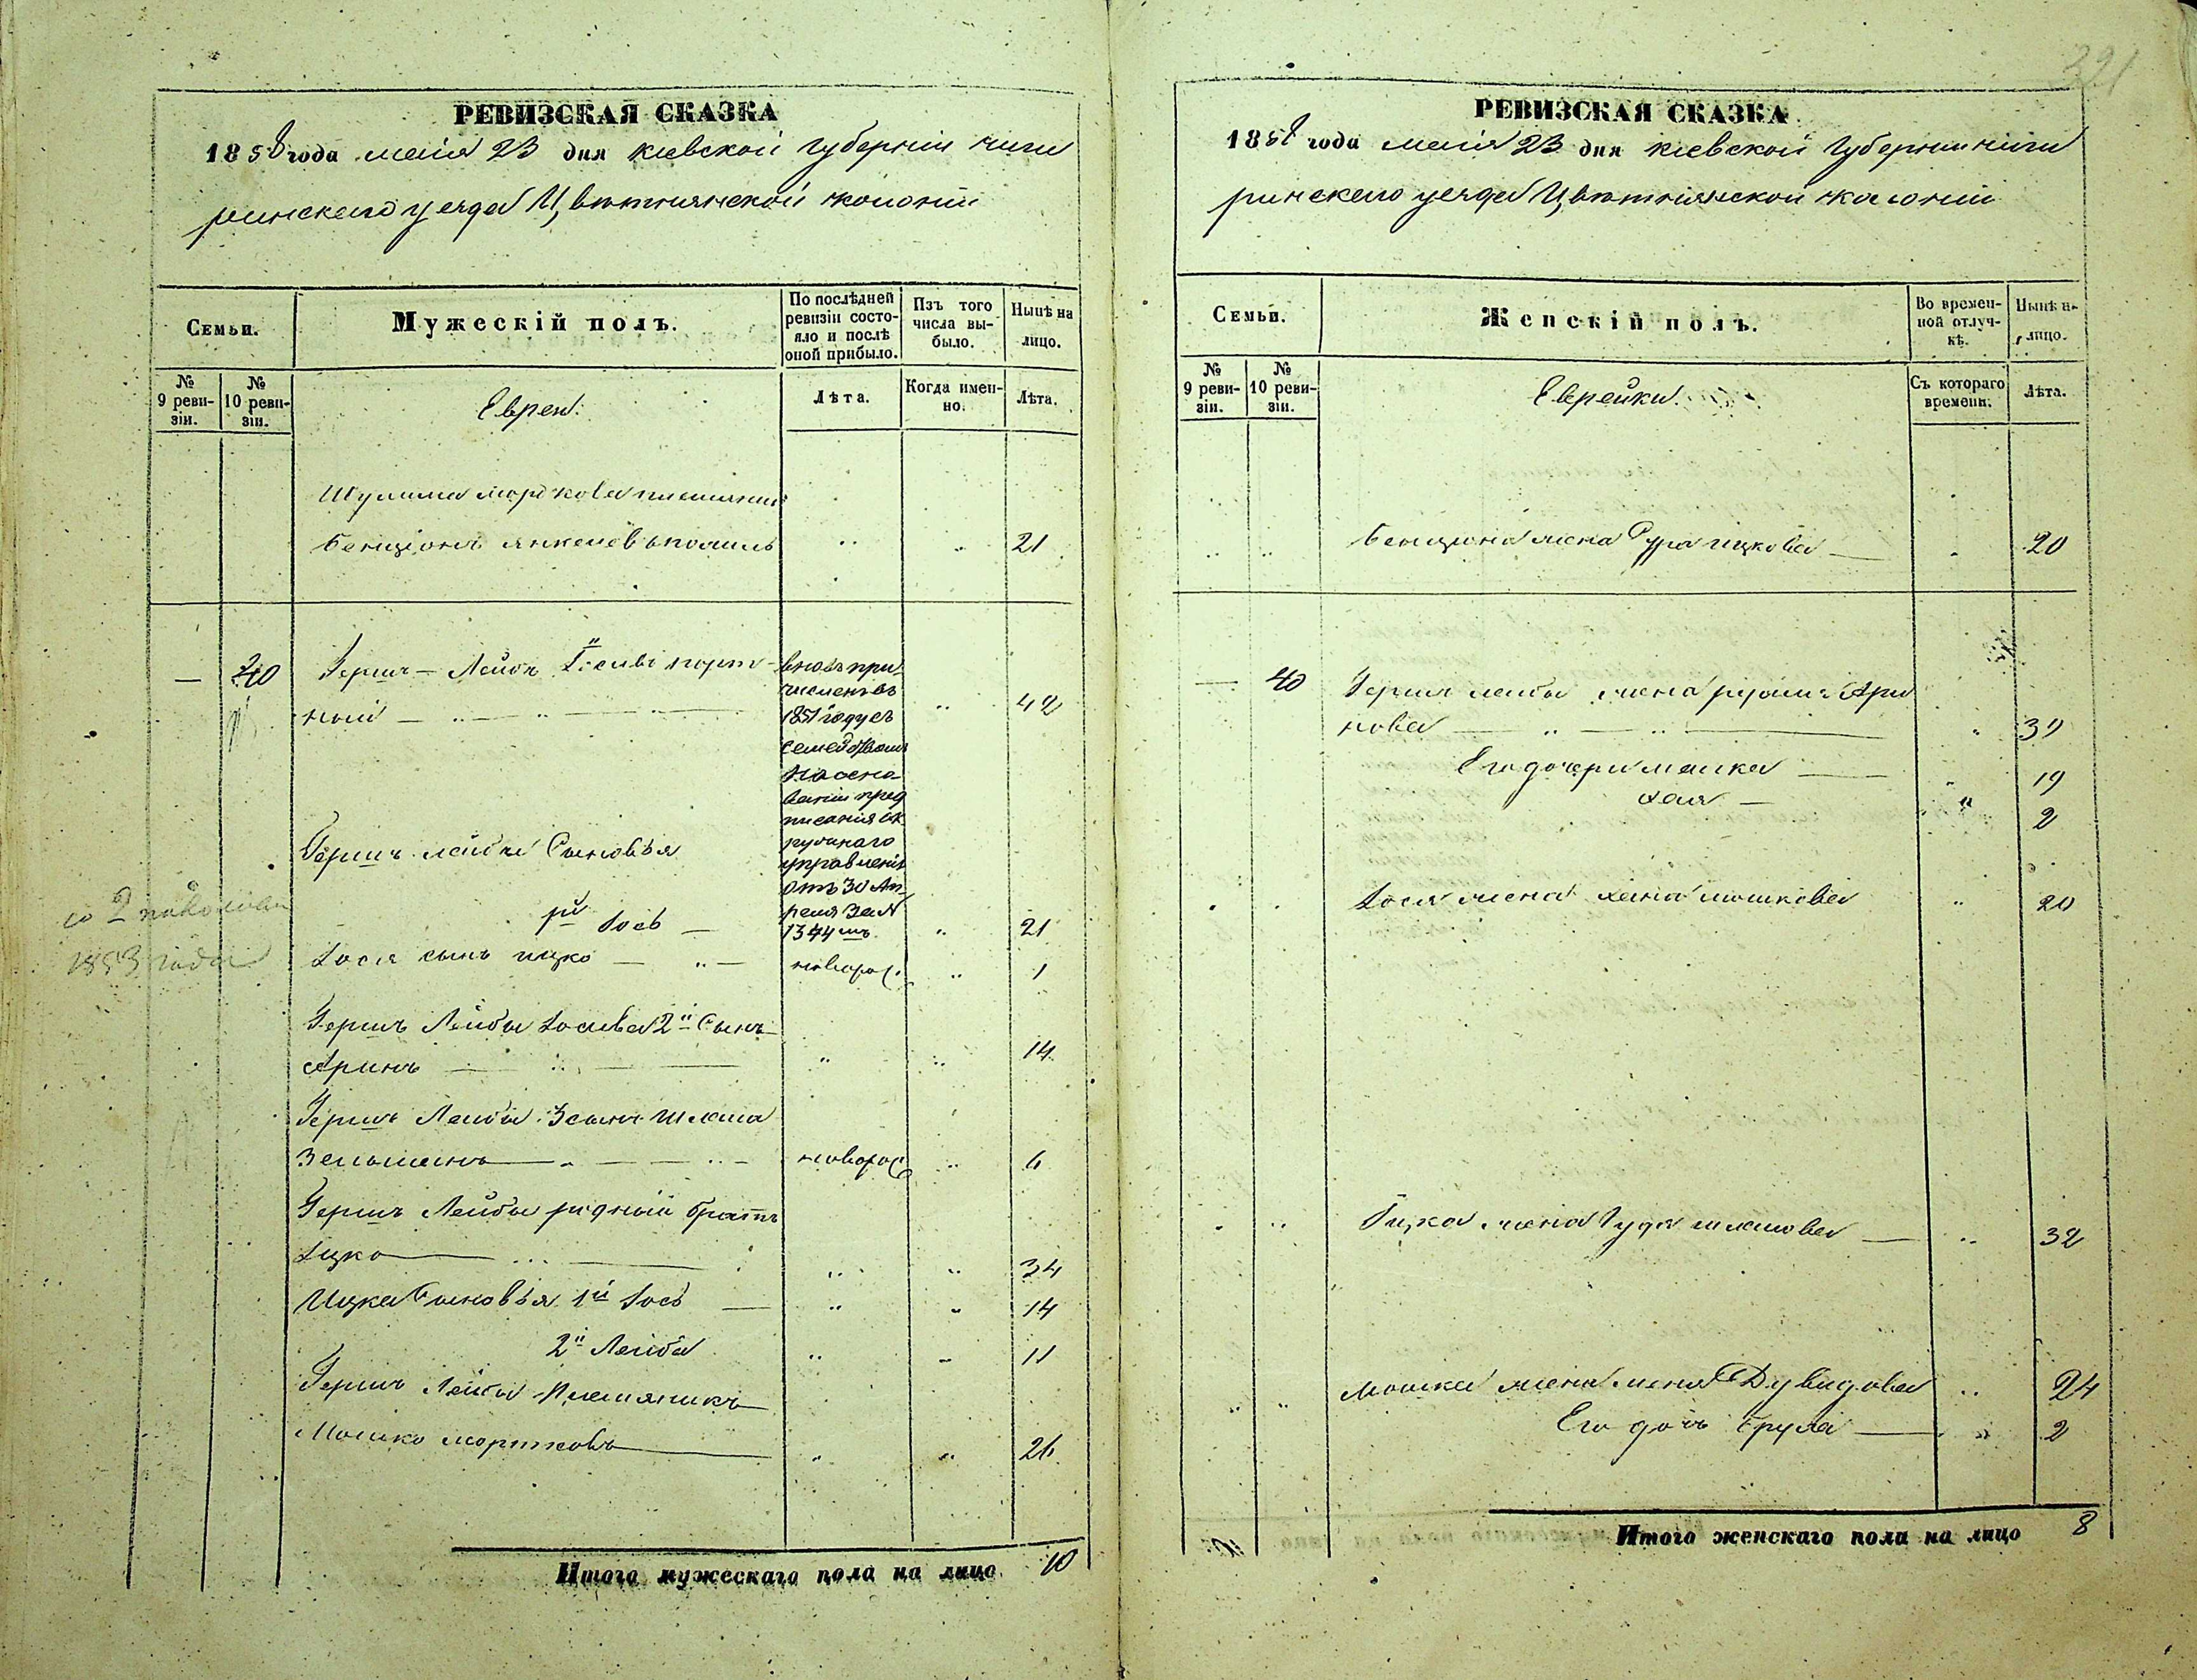 321
РЕВИЗСКАЯ СКАЗКА
1858 года маія 23 дня кіевской губерніи чиги
ринскаго уезда Цвѣтнянской колоніи
Семьи.
Мужескій полъ.
По послѣдней ревизіи состояло и послѣ оной прибыло.
Изъ того числа выбыло.
Нынѣ на лицо.
№ 9 ревизіи.
№ 10 ревизіи.
Евреи.
Лѣта.
Когда именно.
Лѣта.
Шулима моркова племянник
Бенціонъ янкелевъ 21
— 40 Гершъ — Лейбъ Іосіови порт
ной 42
вновь при
численъ въ
1851 году съ
семействомъ
на осно
ваніи пред
писанія ок
ружнаго
управленія
отъ 30 Ап
реля за №
1344мъ
Гершъ лейбы Сыновья
1й Іось — 21
Іося сынъ ицко — новорож. 1
Гершъ Лейбы Іосиова 2й Сынъ
Аринъ 14
Гершъ Лейбы 3 сынъ Шлема
Зельманъ новорож 6
Гершъ Лейбы родный братъ
Іцко 34
Ицка Сыновья 1й Іось — 14
2й Лейба 11
Гершъ Лейбы Племяникъ
Мошко мортковъ 26
1853 года
Итого мужескаго пола на лицо 10
РЕВИЗСКАЯ СКАЗКА
1858 года маія 23 дня кіевской губерніи чиги
ринскаго уезда Цвѣтнянской колоніи
Семьи.
Женскій полъ.
Во временной отлучкѣ.
Нынѣ на лицо.
№ 9 ревизіи.
№ 10 ревизіи.
Еврейки.
Съ котораго времени.
Лѣта.
Бенціона жена Сура ицкова — 20
— 40 Гершъ лейбы жена Ари
нова 39
Его дочери малка — 19
хая — 2
Іося жена хана мошкова 20
Іцка жена Гудя шлемова — 32
Мошка жена Дувидова 24
Его дочъ — 2
Итого женскаго пола на лицо 8